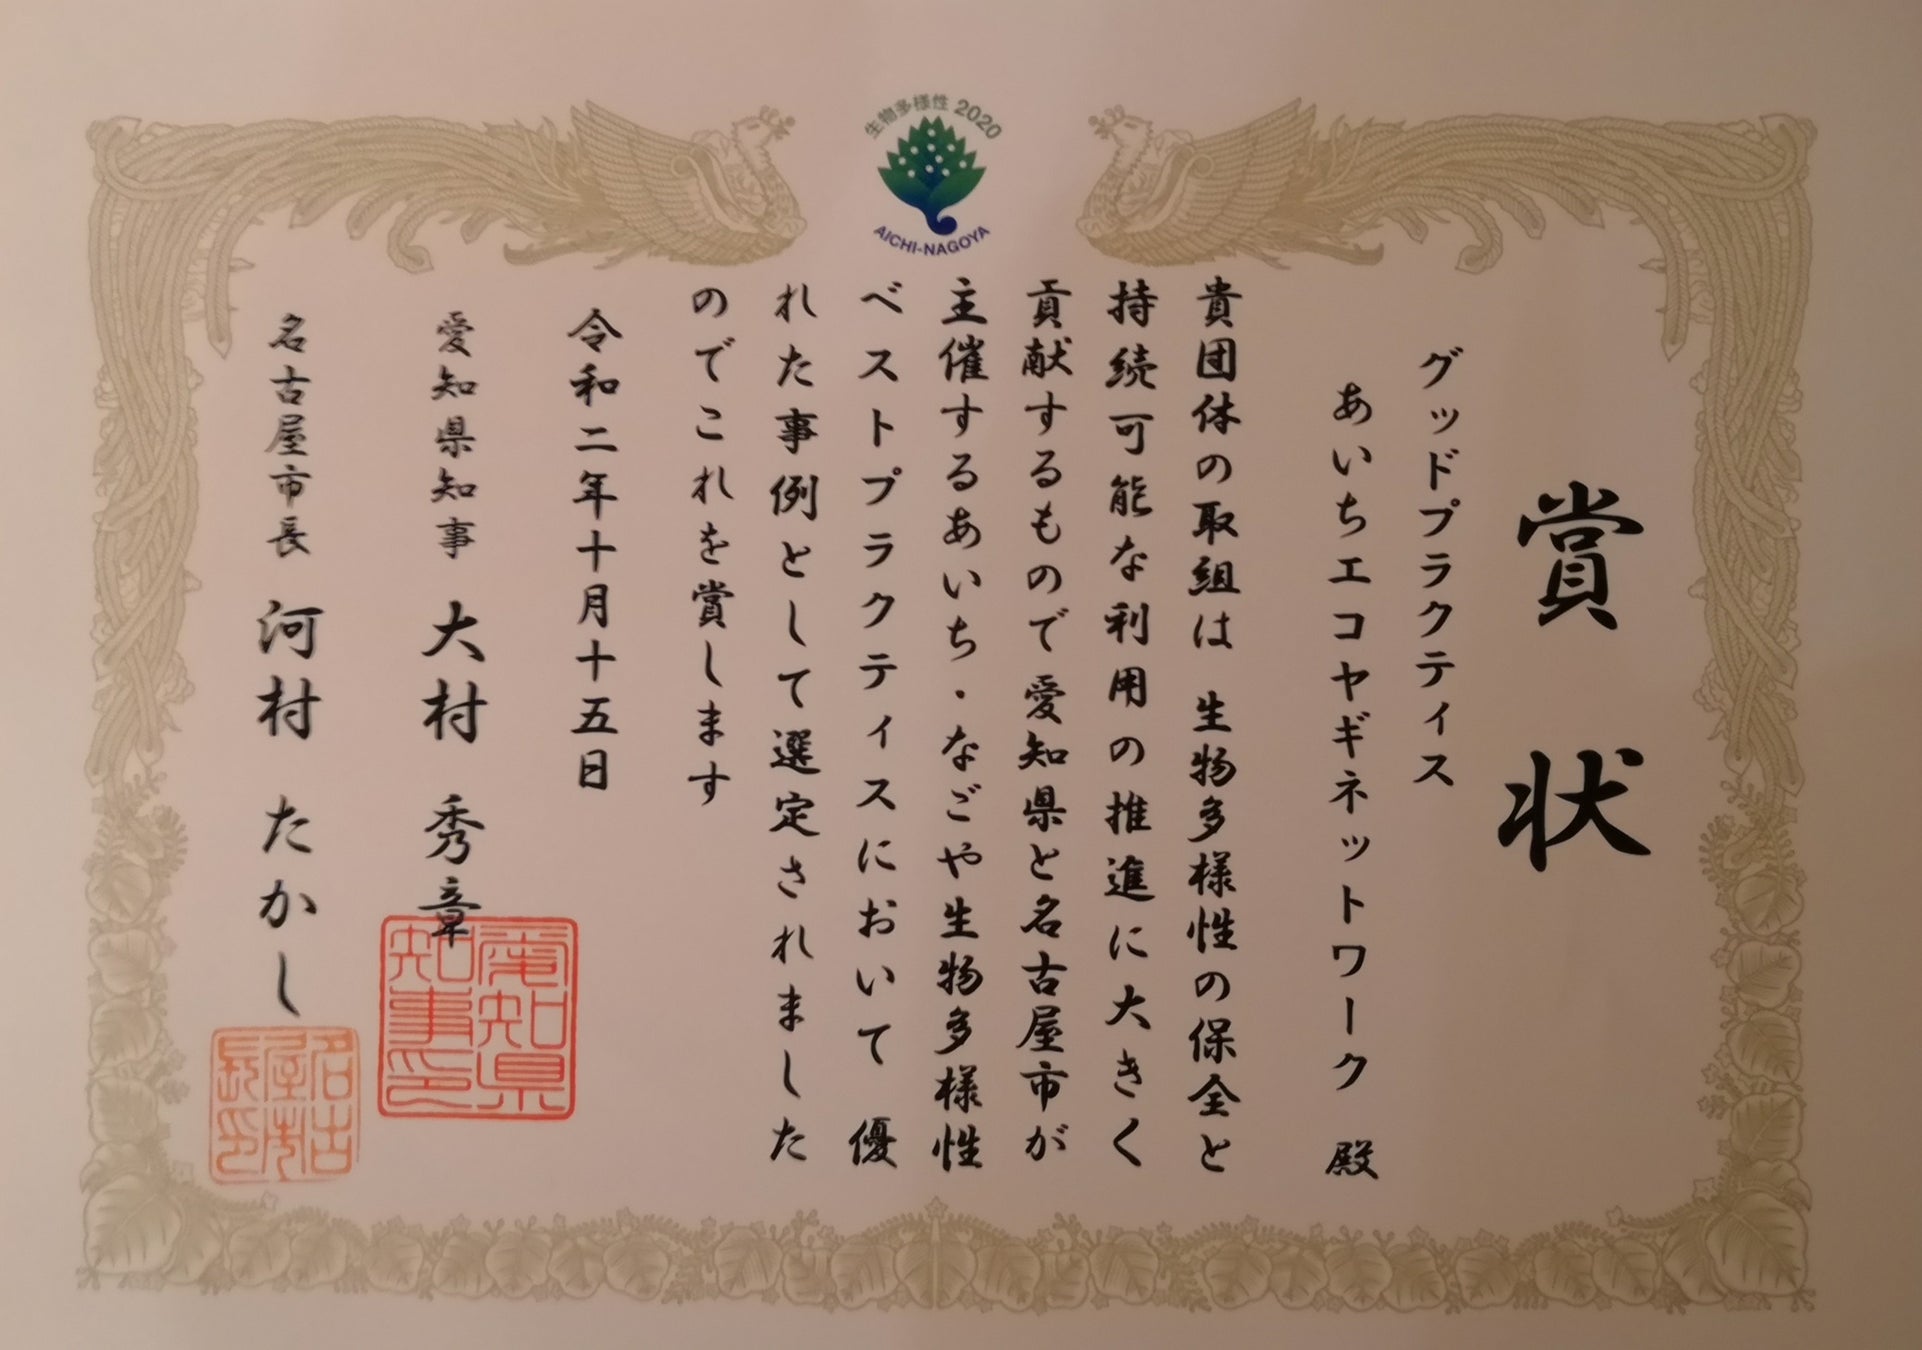 生物多様性 2020
AICHI-NAGOYA
賞状
グッドプラクティス
あいちエコヤギネットワーク 殿
貴団体の取組は 生物多様性の保全と
持続可能な利用の推進に大きく
貢献するもので愛知県と名古屋市が
主催するあいち・なごや生物多様性
ベストプラクティスにおいて 優
れた事例として選定されました
のでこれを賞します
令和二年十月十五日
愛知県知事 大村 秀章
愛知県
知事印
名古屋市長 河村 たかし
名古
屋市
長印